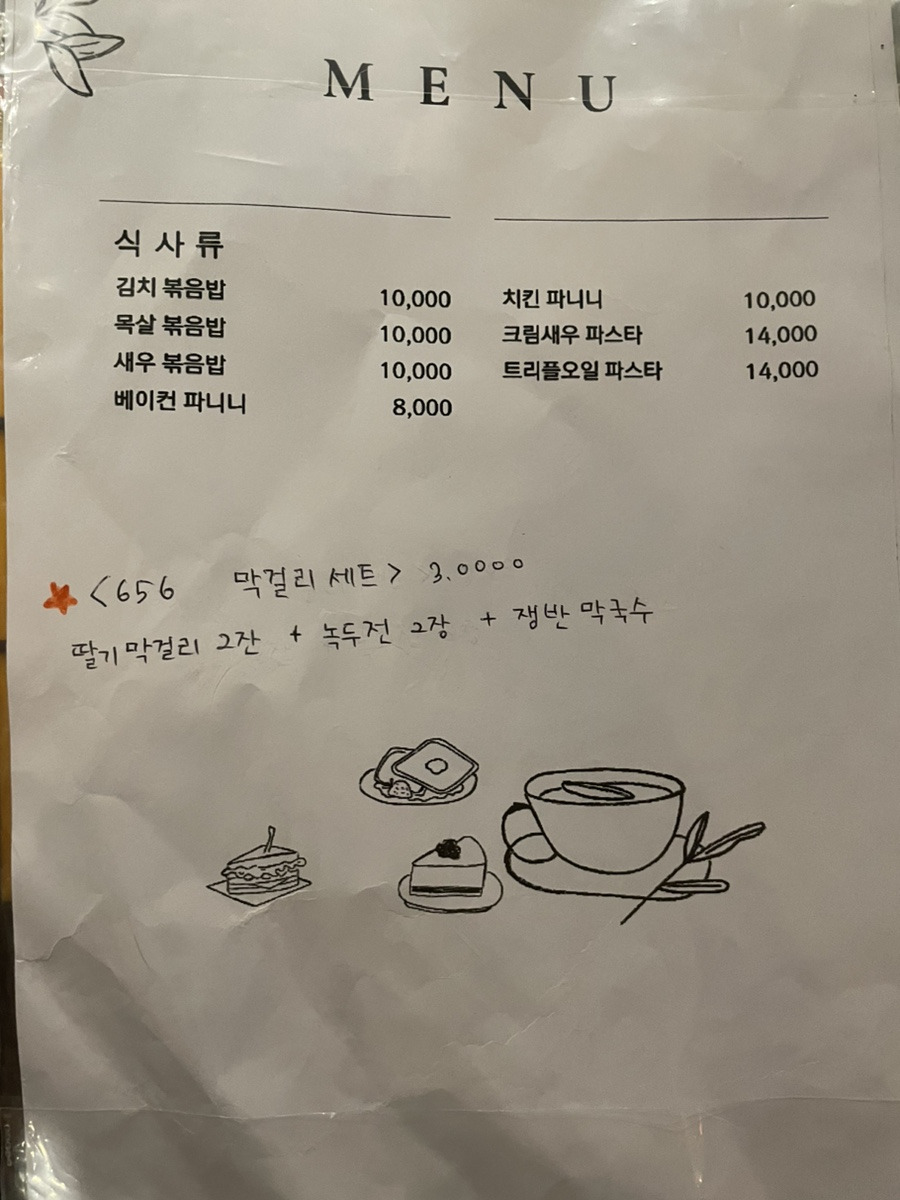 MENU
식사류
김치 볶음밥 10,000
목살 볶음밥 10,000
새우 볶음밥 10,000
베이컨 파니니 8,000
치킨 파니니 10,000
크림새우 파스타 14,000
트리플오일 파스타 14,000
<656 막걸리 세트> 3.0000
딸기막걸리 2잔 + 녹두전 2장 + 쟁반 막국수